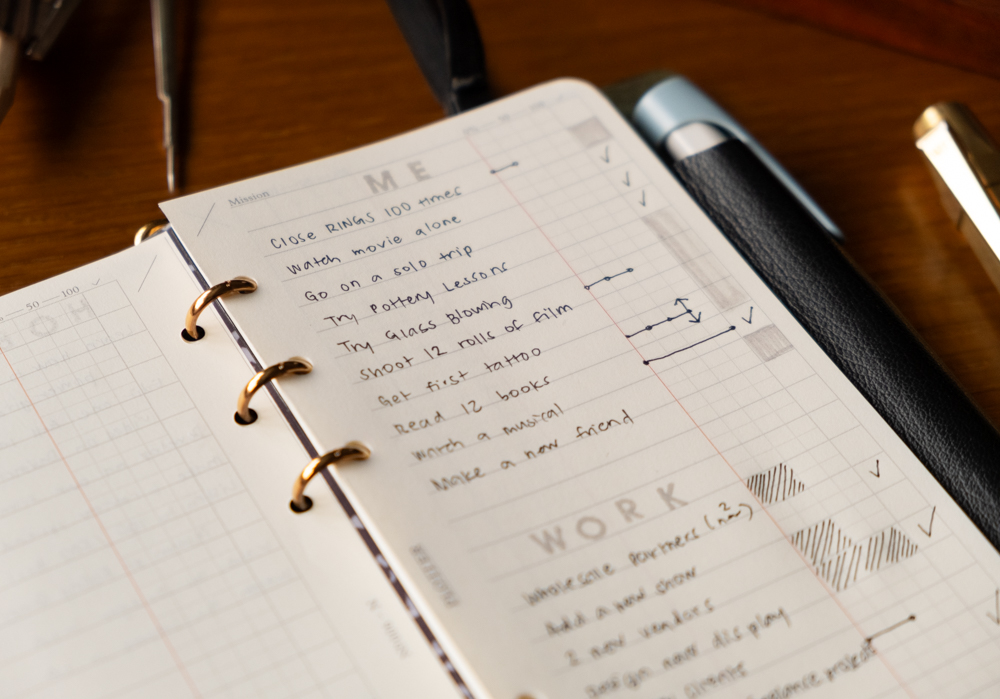 50 — 100
Mission
ME
Close RINGS 100 times
Watch movie alone
Go on a solo trip
Try Pottery Lessons
Try Glass Blowing
Shoot 12 rolls of film
Get first tattoo
Read 12 books
Watch a musical
Make a new friend
WORK
Wholesale Partners (2 new)
Add a new show
new vendors
design new display
project